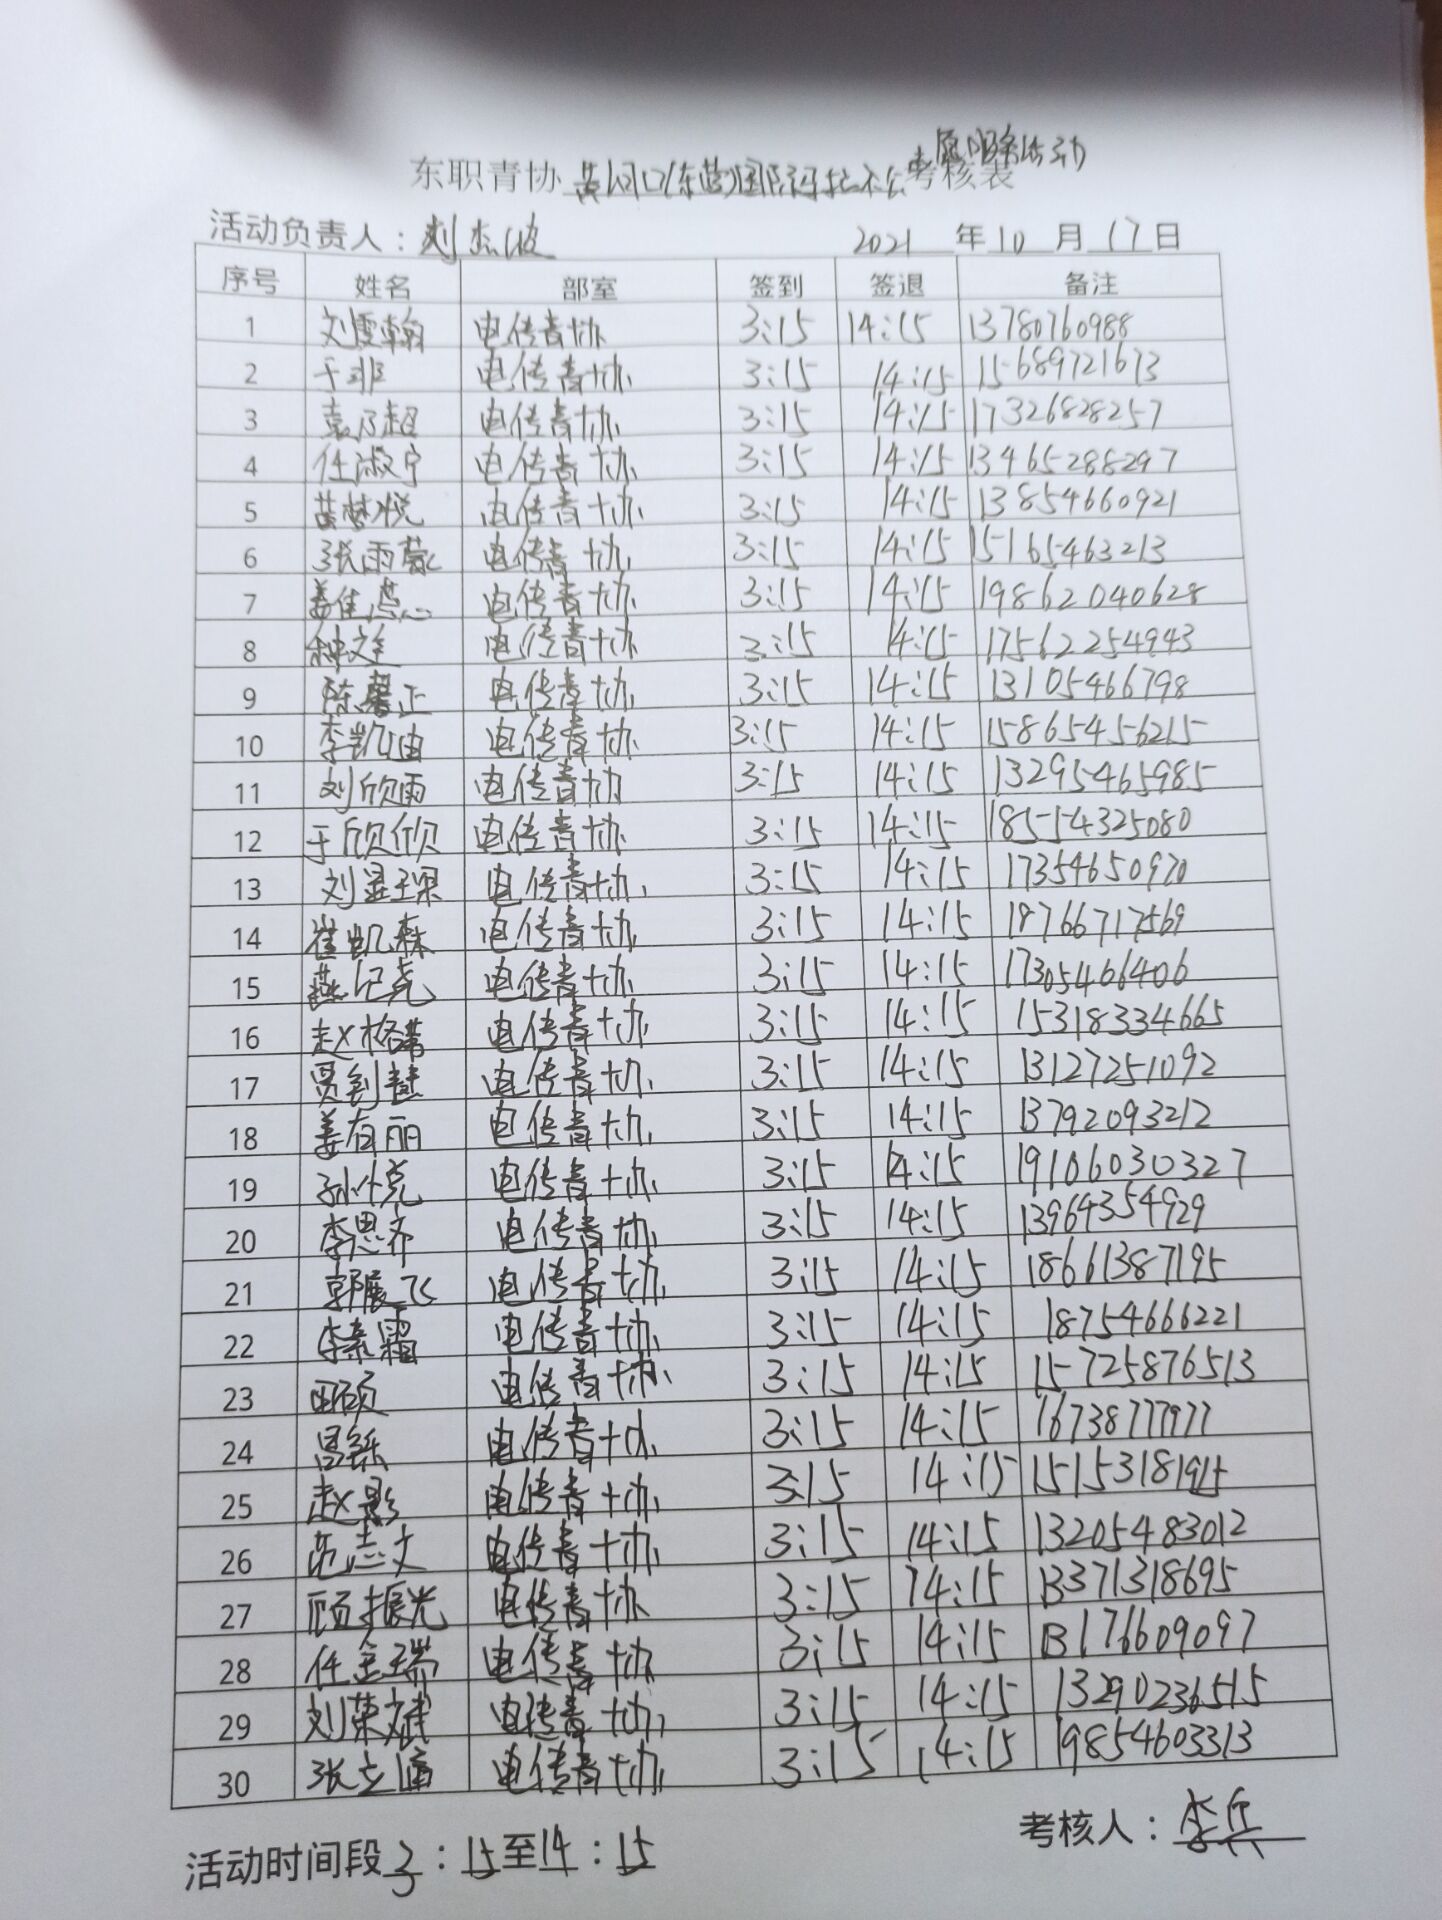 东职青协黄河口(东营)国际马拉松志愿服务活动考核表
活动负责人：刘杰波 2021年10月17日
序号 姓名 部室 签到 签退 备注
1 刘雯翰 电传青协 3:15 14:15 13780760988
2 于非 电传青协 3:15 14:15 15689721673
3 袁乃超 电传青协 3:15 14:15 17326828257
4 任淑宁 电传青协 3:15 14:15 13465288297
5 黄梦悦 电传青协 3:15 14:15 13854660921
6 张雨 电传青协 3:15 14:15 15165463213
7 姜佳 电传青协 3:15 14:15 19862040628
8 电传青协 3:15 14:15 17562254943
9 陈馨正 电传青协 3:15 14:15 13105466798
10 李凯迪 电传青协 3:15 14:15 15865456215
11 刘欣雨 电传青协 3:15 14:15 13295465985
12 于欣欣 电传青协 3:15 14:15 18554325080
13 刘 电传青协 3:15 14:15 17354650970
14 崔凯森 电传青协 3:15 14:15 18766717569
15 燕 电传青协 3:15 14:15 17305466406
16 赵格 电传青协 3:15 14:15 15318334665
17 贾 电传青协 3:15 14:15 13127251092
18 姜有丽 电传青协 3:15 14:15 13792093212
19 孙悦 电传青协 3:15 14:15 19106030327
20 李思齐 电传青协 3:15 14:15 13964354929
21 郭展飞 电传青协 3:15 14:15 18661387195
22 霜 电传青协 3:15 14:15 18754666221
23 田硕 电传青协 3:15 14:15 15725876513
24 电传青协 3:15 14:15 16738777977
25 赵影 电传青协 3:15 14:15 15153181915
26 范志文 电传青协 3:15 14:15 13205483012
27 顾振光 电传青协 3:15 14:15 13371318695
28 任金瑞 电传青协 3:15 14:15 13176609097
29 刘荣斌 电传青协 3:15 14:15 13290236515
30 张立 电传青协 3:15 14:15 19854603313
考核人：李兵
活动时间段3：15至14：15